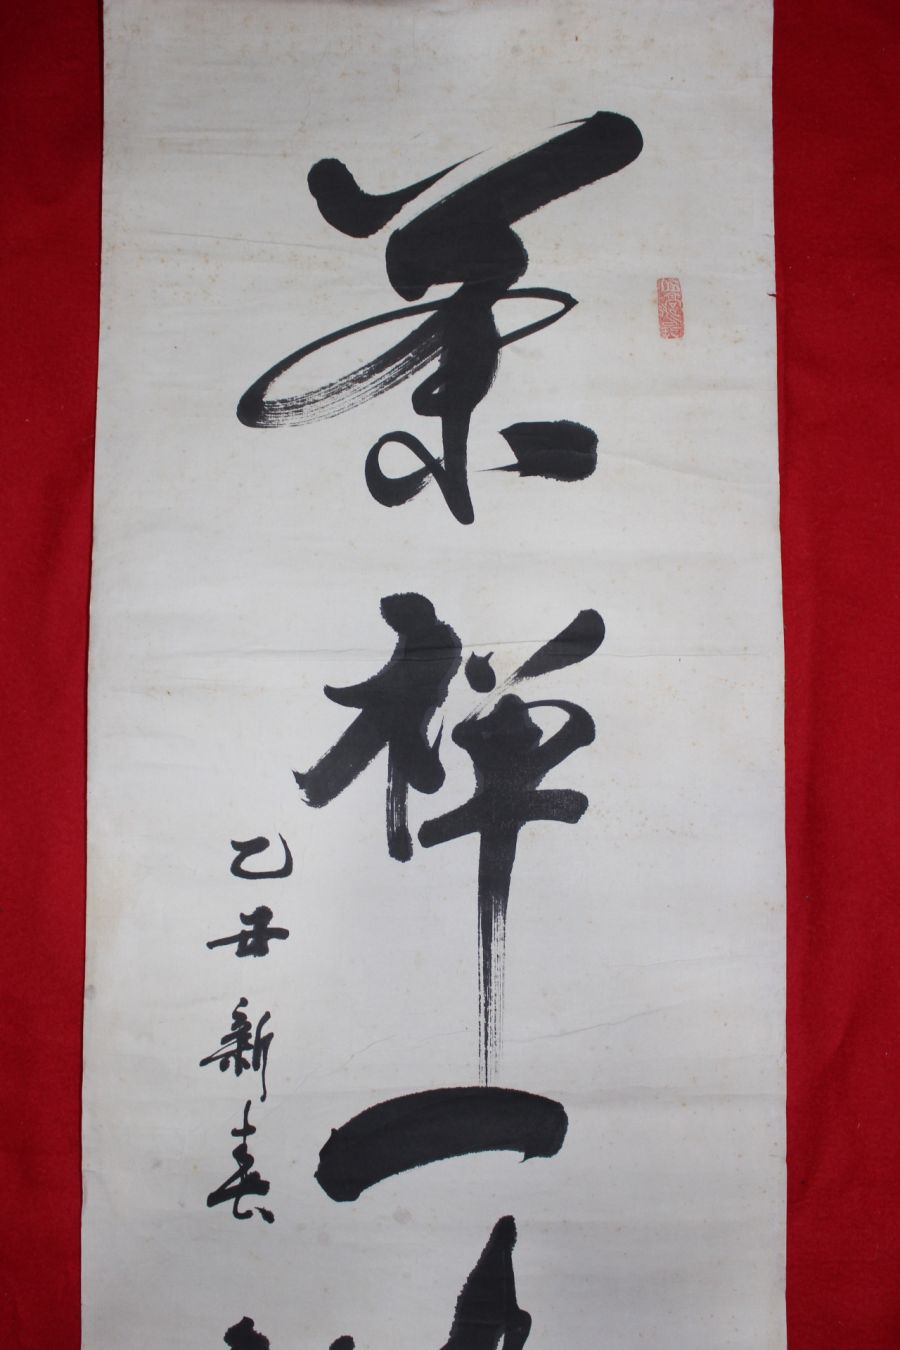 茶禅一味
乙丑新春